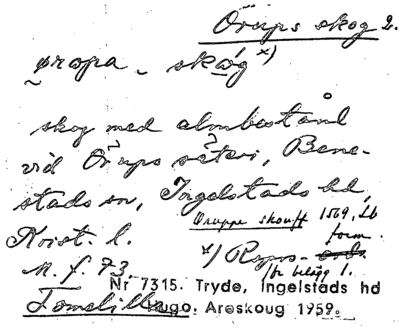 Örups skog 2.
skog med almbestånd
vid Örups säteri, Bene-
stads sn, Ingelstads hd,
Oruppe skouff 1569, Lb
form.
Krist. l.
M. f. 73
Nr 7315. Tryde, Ingelstads hd
Tomelilla Hugo Areskoug 1959.